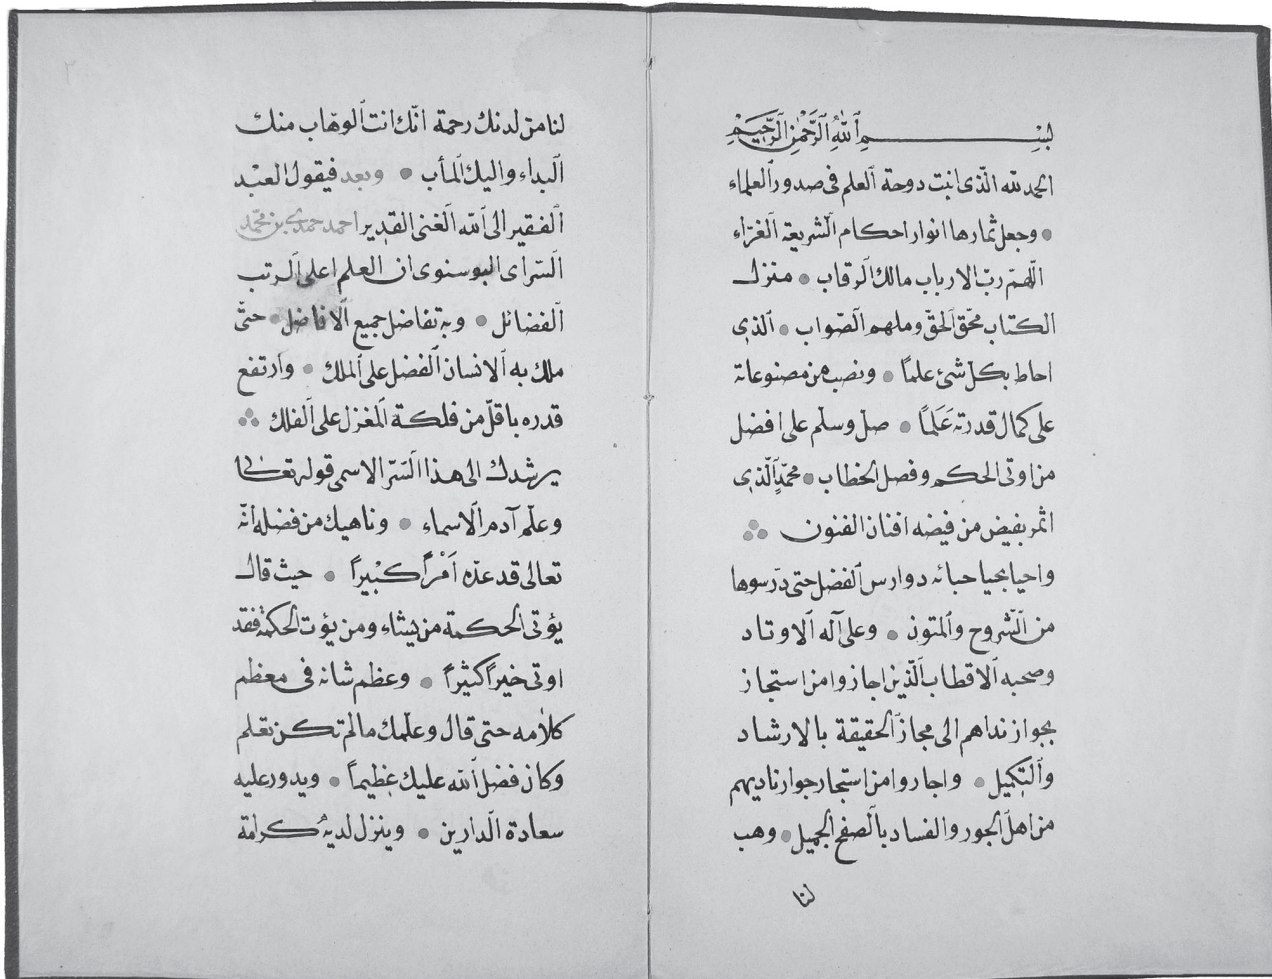 بسم ٱللّٰهِ ٱلرَّحْمٰنِ ٱلرَّحِيمِ
الحمد لله الّذى انبت دوحة ٱلعلم فى صدور ٱلعلماء
• وجعل ثمارها انوار احكام ٱلشريعة ٱلغرّاء
الّلهمّ ربّ الارباب مالك ٱلرقاب • منزل
الكتاب محقّ ٱلحقّ وملهم ٱلصّواب • ٱلذى
احاط بكلّ شئ علماً • ونصب من مصنوعاته
على كمال قدرته عَلَماً • صلّ وسلّم على افضل
من اوتى الحكم وفصل الخطاب • محمّدٍ ٱلّذى
اثمر بفيض من فيضه افنان الفنون ∴
واحيا بحيا حبائه دوارس ٱلفضل حتى درسوها
من ٱلشروح وٱلمتون • وعلى آله ٱلاوتاد
وصحبه ٱلاقطاب ٱلّذين اجازوا من استجاز
بجواز نداهم الى مجاز ٱلحقيقة بالارشاد
وٱلتكميل • واجاروا من استجار جوار ناديهم
من اهل ٱلجور والفساد بٱلصفح الجميل • وهب
لنا
لنا من لدنك رحمة انّك انت ٱلوهّاب منك
ٱلبداء واليك ٱلمأب • وبعد فيقول العبد
ٱلفقير الى ٱلله ٱلغنى القدير احمد حمدى بن محمّد
ٱلسراى البوسنوى ان العلم اعلى ٱلرتب
ٱلفضائل • وبه تفاضل جميع ٱلافاضل • حتّى
ملك به ٱلانسان ٱلفضل على ٱلملك • وارتفع
قدره باقلّ من فلكة ٱلمغزل على ٱلفلك ∴
يرشدك الى هذا ٱلسّرّ الاسمى قوله تعالى
وعلّم آدم ٱلاسماء • وناهيك من فضله انّه
تعالى قد عدّه اَمْراً كبيراً • حيث قال
يؤتى الحكمة من يشاء ومن يؤت الحكمة فقد
اوتى خيراً كثيراً • وعظم شانه فى معظم
كلامه حتى قال وعلّمك مالم تكن تعلم
وكان فضل ٱلله عليك عظيماً • ويدور عليه
سعادة ٱلدارين • وينزل لديه كرامة